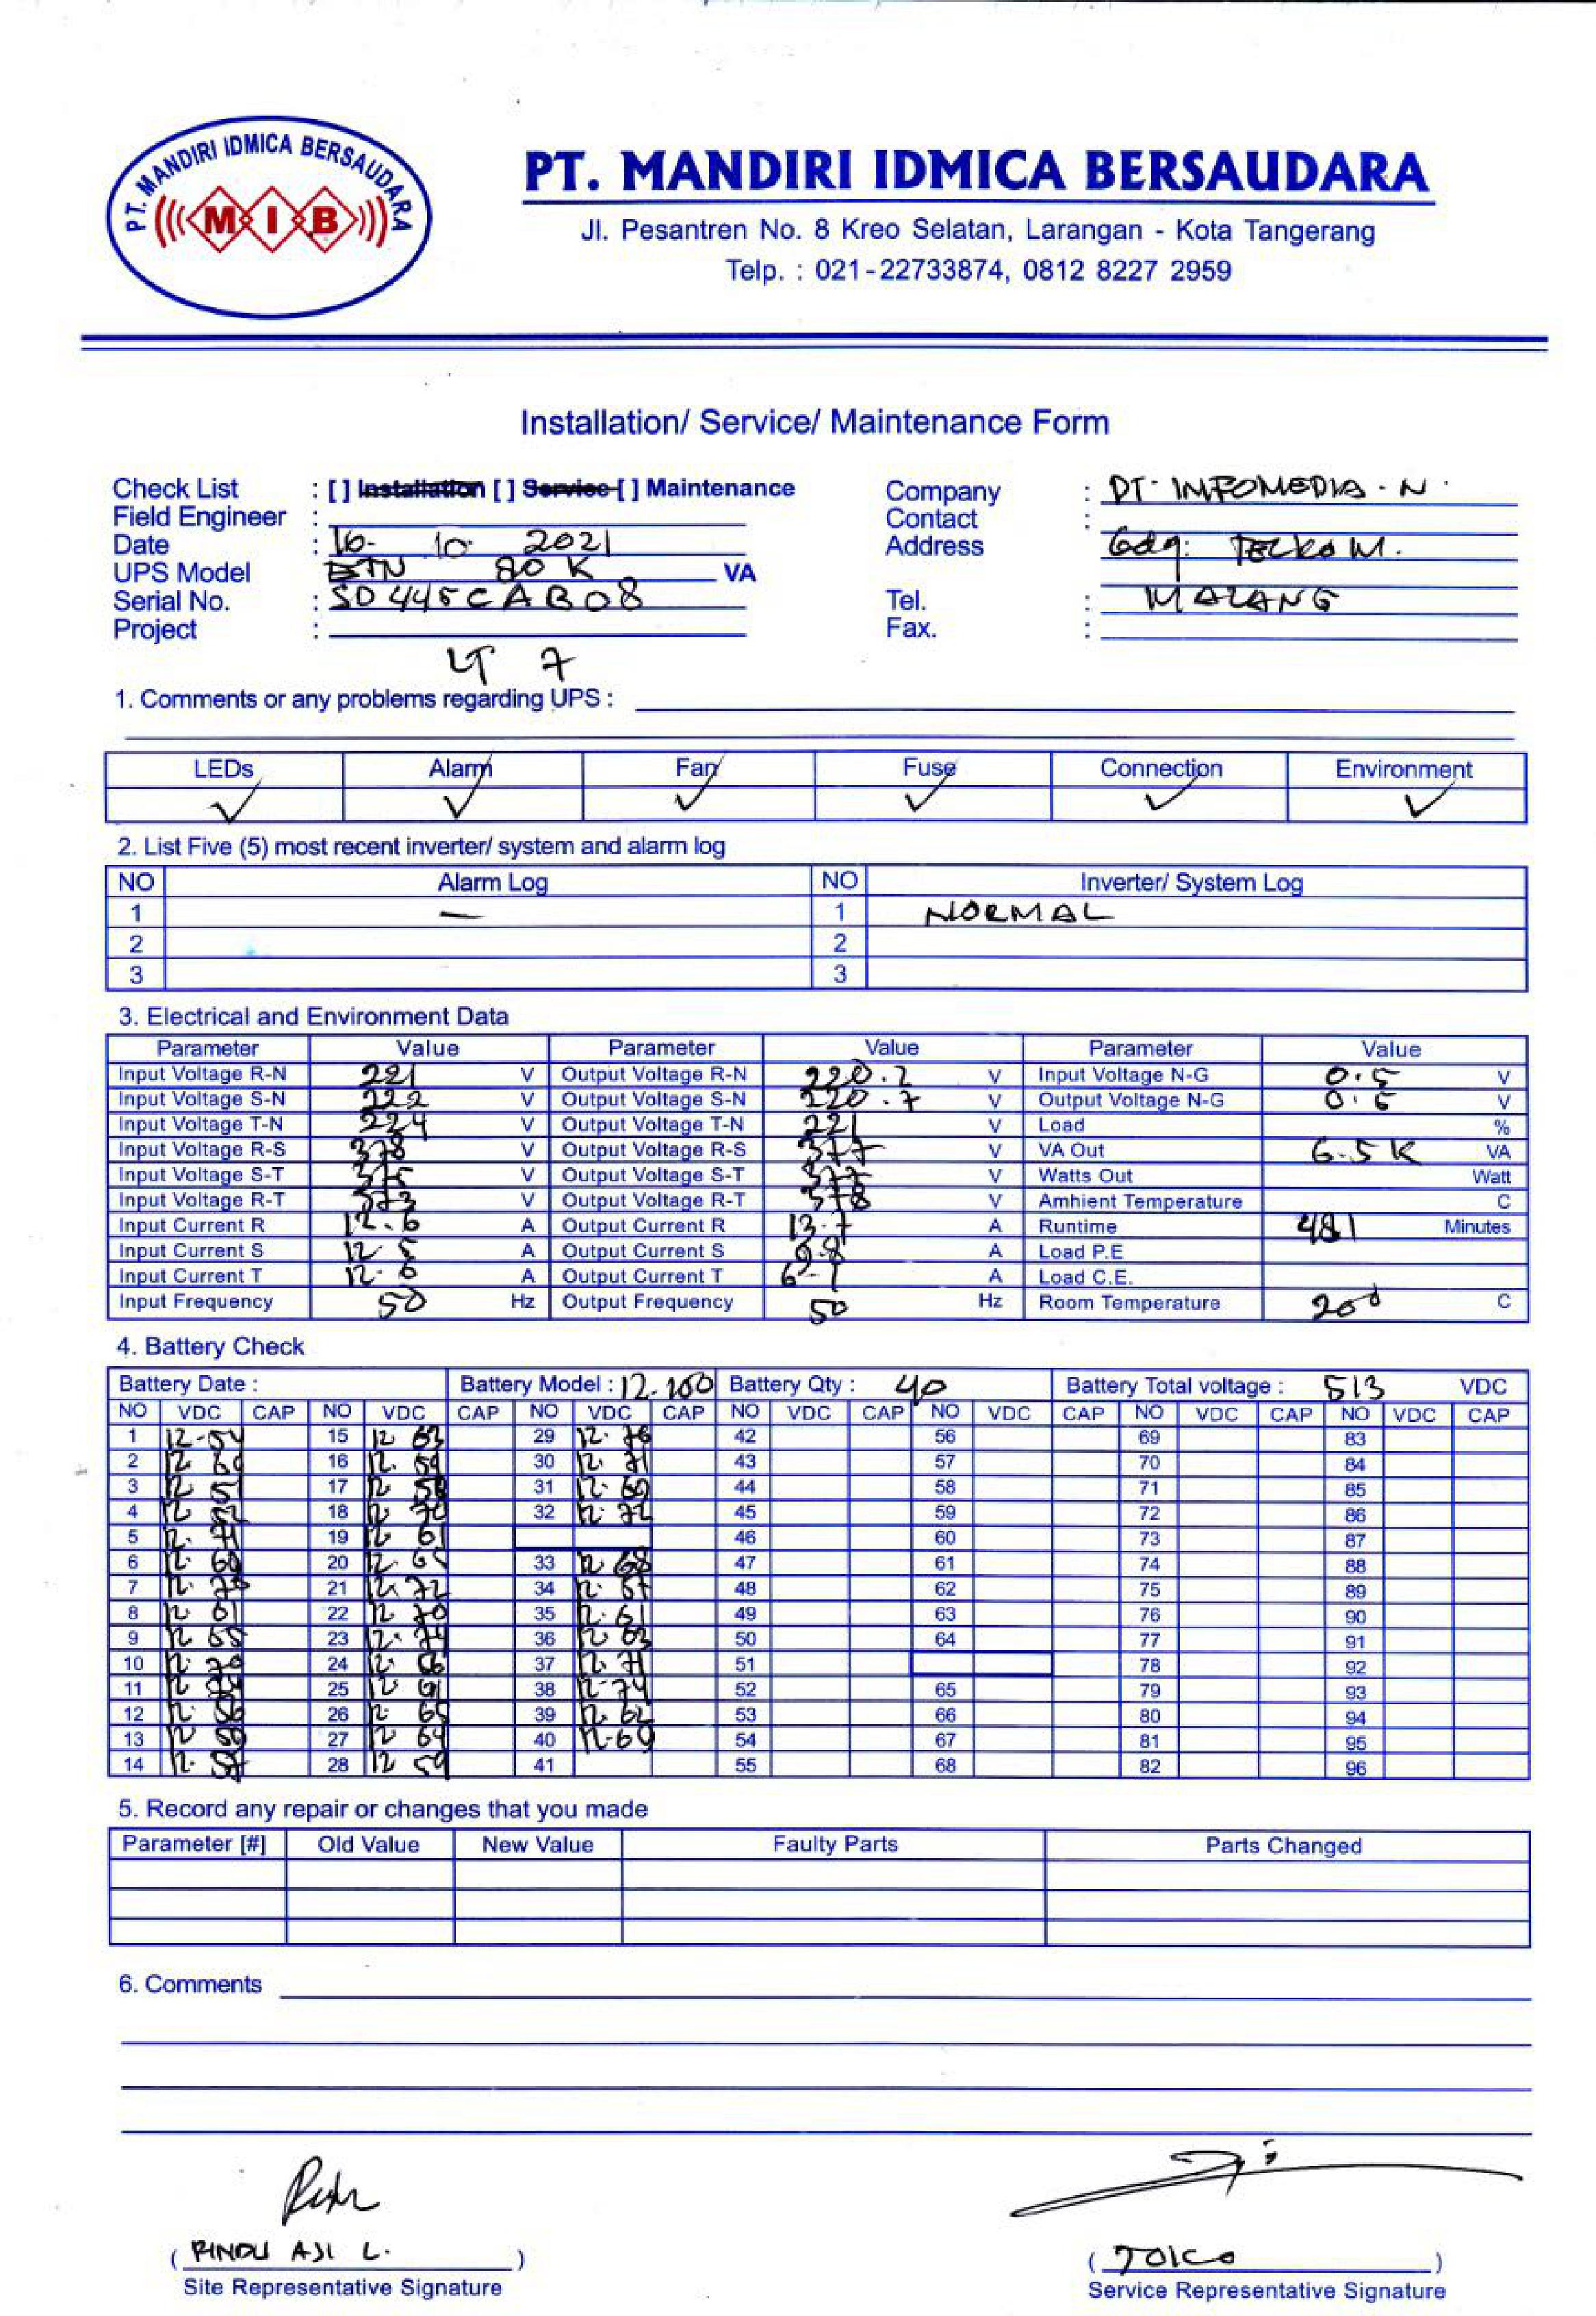 PT. MANDIRI IDMICA BERSAUDARA
M I B
PT. MANDIRI IDMICA BERSAUDARA
Jl. Pesantren No. 8 Kreo Selatan, Larangan - Kota Tangerang
Telp. : 021-22733874, 0812 8227 2959
Installation/ Service/ Maintenance Form
Check List : [ ] Installation [ ] Service [ ] Maintenance
Field Engineer :
Date : 16- 10 2021
UPS Model 80 K VA
Serial No. : SD445CAB08
Project :
LT 7
Company : PT. INFOMEDIA . N .
Contact :
Address Gdg. TELKOM.
Tel. : MALANG
Fax. :
1. Comments or any problems regarding UPS :
LEDs Alarm Fan Fuse Connection Environment
✓ ✓ ✓ ✓ ✓ ✓
2. List Five (5) most recent inverter/ system and alarm log
NO Alarm Log NO Inverter/ System Log
1 — 1 NORMAL
2 2
3 3
3. Electrical and Environment Data
Parameter Value Parameter Value Parameter Value
Input Voltage R-N 221 V Output Voltage R-N 220.2 V Input Voltage N-G 0.5 V
Input Voltage S-N 222 V Output Voltage S-N 220.7 V Output Voltage N-G V
Input Voltage T-N 224 V Output Voltage T-N 221 V Load %
Input Voltage R-S 378 V Output Voltage R-S 377 V VA Out 6.5 K VA
Input Voltage S-T V Output Voltage S-T 377 V Watts Out Watt
Input Voltage R-T 373 V Output Voltage R-T 378 V Amhient Temperature C
Input Current R 12.6 A Output Current R 13.7 A Runtime 481 Minutes
Input Current S A Output Current S 9.8 A Load P.E
Input Current T 12.6 A Output Current T 6-1 A Load C.E.
Input Frequency 50 Hz Output Frequency 50 Hz Room Temperature C
4. Battery Check
Battery Date : Battery Model : 12.100 Battery Qty : 40 Battery Total voltage : 513 VDC
NO VDC CAP NO VDC CAP NO VDC CAP NO VDC CAP NO VDC CAP NO VDC CAP NO VDC CAP
1 12-54 15 12 63 29 12.76 42 56 69 83
2 12 60 16 12.59 30 12.71 43 57 70 84
3 12 51 17 12 31 12.69 44 58 71 85
4 12 52 18 12 70 32 12.72 45 59 72 86
5 12.71 19 12 61 46 60 73 87
6 12.60 20 12.65 33 12 68 47 61 74 88
7 12. 21 12.72 34 12.67 48 62 75 89
8 12 61 22 12 70 35 12.61 49 63 76 90
9 12 65 23 12.74 36 12 63 50 64 77 91
10 12.70 24 12. 66 37 12.71 51 78 92
11 12 25 12 61 38 12-74 52 65 79 93
12 12.56 26 12 65 39 12 62 53 66 80 94
13 12 59 27 12 64 40 12-69 54 67 81 95
14 12.57 28 12 59 41 55 68 82 96
5. Record any repair or changes that you made
Parameter [#] Old Value New Value Faulty Parts Parts Changed
6. Comments
( RINDU AJI L. )
Site Representative Signature
( )
Service Representative Signature